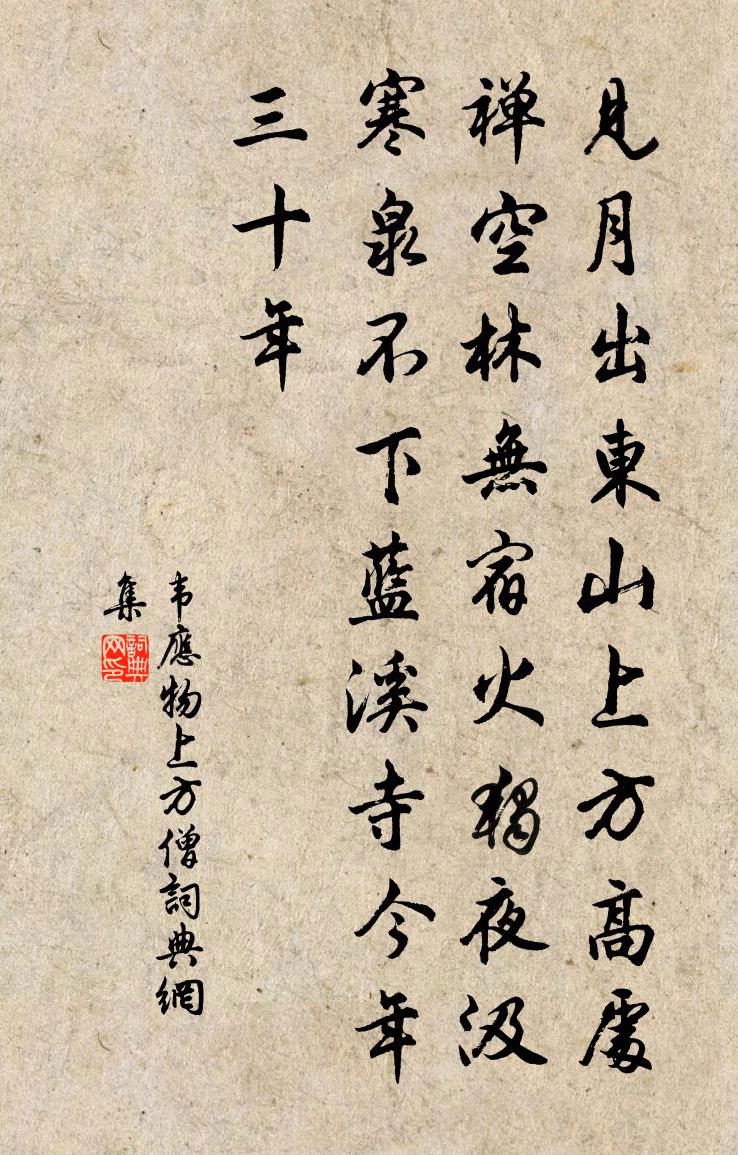 見月出東山上方高處
禅空林無宿火獨夜汲
寒泉不下藍溪寺今年
三十年
韦應物上方僧詞典網
集
詞典
网印